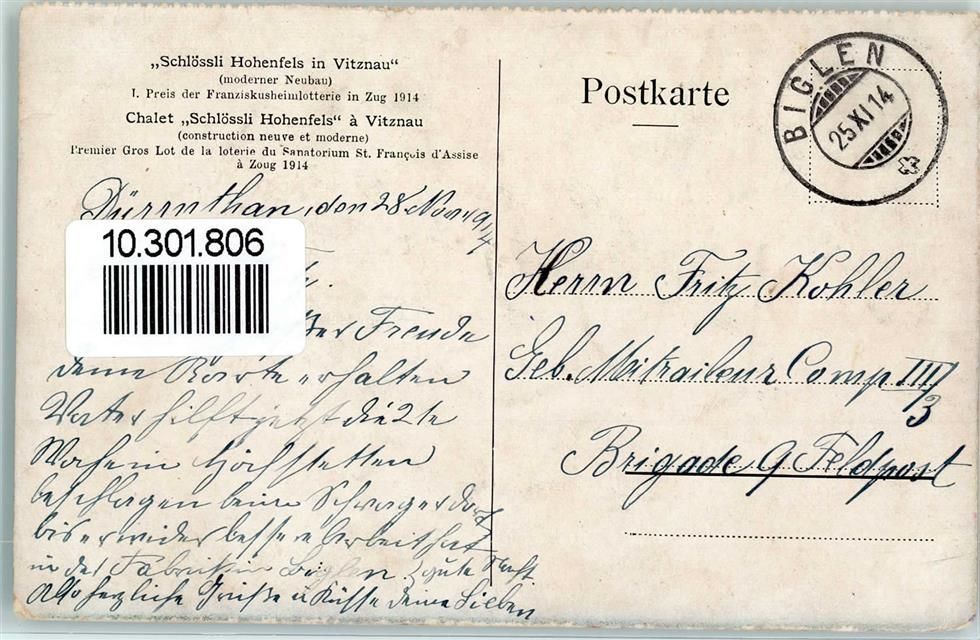 „Schlössli Hohenfels in Vitznau“
(moderner Neubau)
I. Preis der Franziskusheimlotterie in Zug 1914
Chalet „Schlössli Hohenfels“ à Vitznau
(construction neuve et moderne)
Premier Gros Lot de la loterie du Sanatorium St. François d'Assise
à Zoug 1914
den 28 Nov. 1914
10.301.806
Freude
deine Karte erhalten
Vater hilft jetzt die 2te
Woche in Höchstetten
beschlagen beim Schwager dort
bis er wieder bessere Arbeit hat
in der Fabrik in Biglen. gute Nacht
Also herzliche Grüße u Küsse deine Lieben
Postkarte
BIGLEN
25 XI 14
Herrn Fritz Kohler
Geb. Mitraileur Comp III/3
Brigade 9 Feldpost